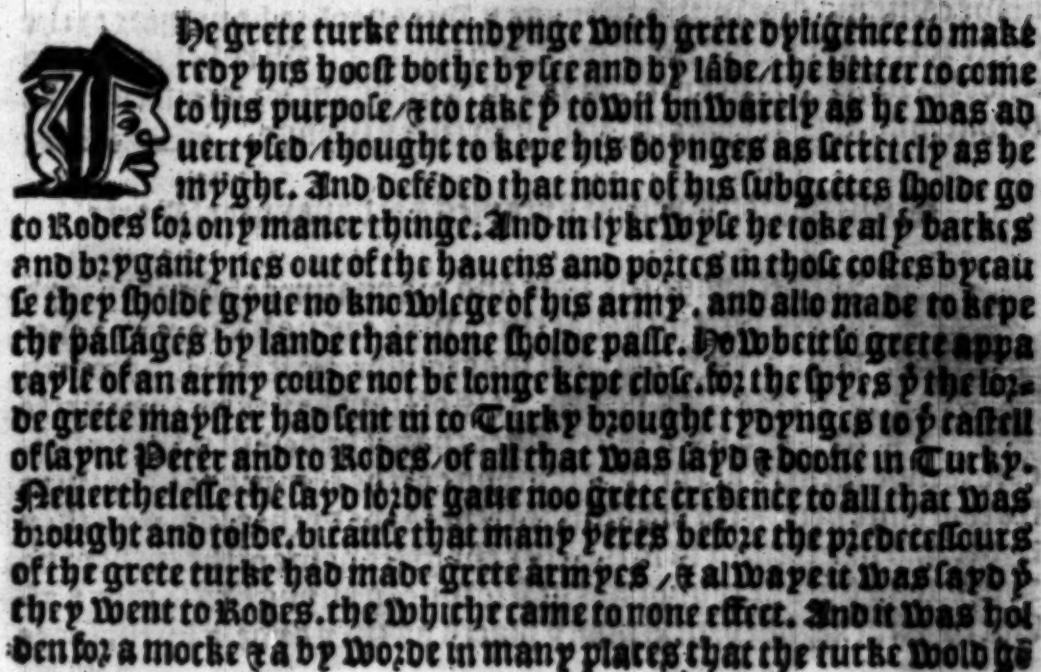 THe grete turke intendynge with grete dyligence to make
redy his hoost bothe by see and by lāde/the better to come
to his purpose/& to take yͤ towne vnwarely as he was ad
uertysed/thought to kepe his doynges as secretely as he
myght. And defēded that none of his subgectes sholde go
to Rodes for ony maner thinge. And in lykewyse he toke al yͤ barkes
and brygātynes out of the hauens and portes in those costes bycau
se they sholde gyue no knowlege of his army. and also made to kepe
the passages by lande that none sholde passe. Howbeit so grete appa
rayle of an army coude not be longe kept close. for the spyes yͭ the lor=
de grete mayster had sent in to Turky brought tydynges to yͤ castell
of saynt Peter and to Rodes/of all that was sayd & doone in Turky.
Neuerthelesse the sayd lorde gaue noo grete credence to all that was
brought and tolde. bicause that many yeres before the predecessours
of the grete turke had made grete armyes/& alwaye it was sayd yͭ
they went to Rodes. the whiche came to none effect. And it was hol
den for a mocke & a by worde in many places that the turke wold